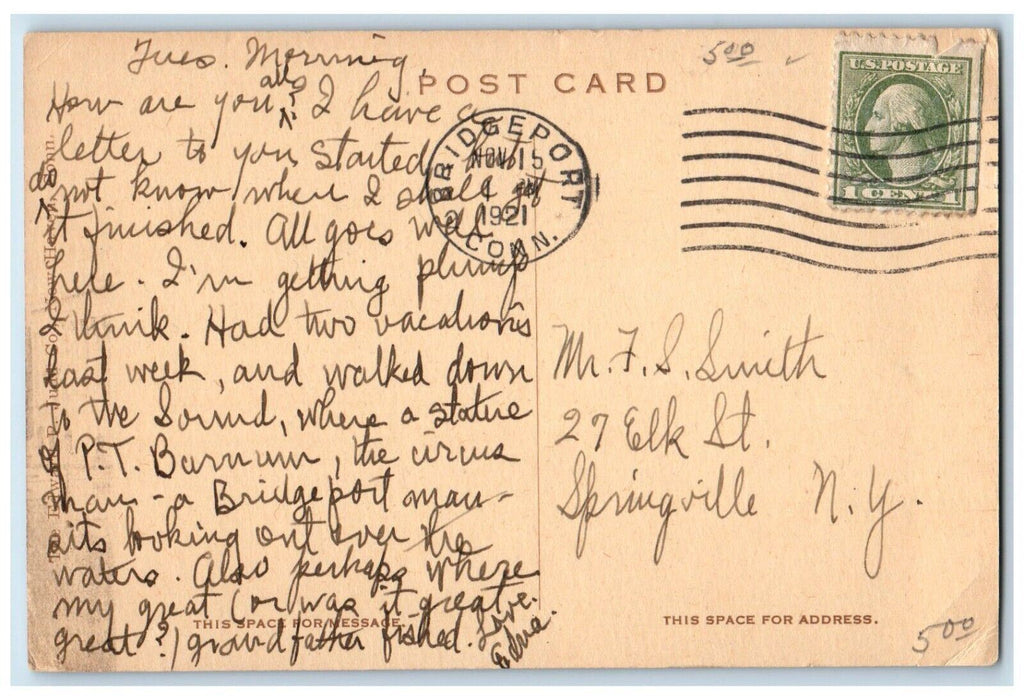 Tues. Morning.
POST CARD
5 00
U.S. POSTAGE
1 CENT 1
BRIDGEPORT
NOV 15
1921
CONN.
How are you all? I have a
letter to you started but
do not know when I shall get
it finished. All goes well
here. I'm getting plump
I think. Had two vacations
last week, and walked down
to the Sound, where a statue
of P.T. Barnum, the circus
man - a Bridgeport man -
sits looking out over the
waters. Also perhaps where
my great (or was it great
great?) grandfather fished.
Love.
Edna.
Mr. F. S. Smith
27 Elk St.
Springville N.Y.
THIS SPACE FOR MESSAGE.
THIS SPACE FOR ADDRESS.
5 00